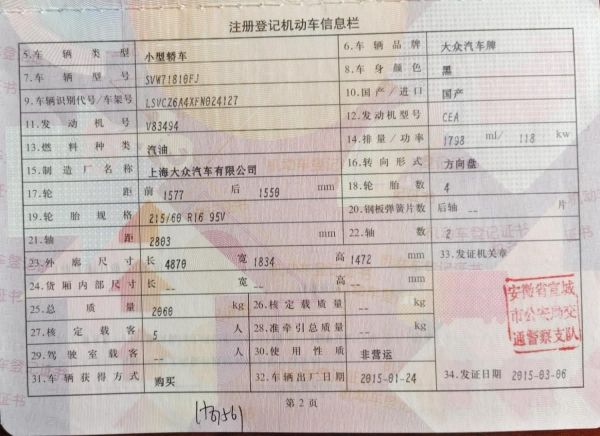 注册登记机动车信息栏
5.车辆类型 小型轿车 6.车辆品牌 大众汽车牌
7.车辆型号 SVW71810FJ 8.车身颜色 黑
9.车辆识别代号/车架号 LSVCZ6A4XFN024127 10.国产/进口 国产
11.发动机号 V83494 12.发动机型号 CEA
13.燃料种类 汽油 14.排量/功率 1798 ml/ 118 kw
15.制造厂名称 上海大众汽车有限公司 16.转向形式 方向盘
17.轮距 前 1577 后 1550 mm 18.轮胎数 4
19.轮胎规格 215/60 R16 95V 20.钢板弹簧片数 后轴 -- 片
21.轴距 2803 mm 22.轴数 2
23.外廓尺寸 长 4870 宽 1834 高 1472 mm 33.发证机关章
24.货厢内部尺寸 长 -- 宽 -- 高 -- mm
安徽省宣城
市公安局交
通警察支队
25.总质量 2060 kg 26.核定载质量 -- kg
27.核定载客 5 人 28.准牵引总质量 -- kg
29.驾驶室载客 -- 人 30.使用性质 非营运
31.车辆获得方式 购买 32.车辆出厂日期 2015-01-24 34.发证日期 2015-03-06
第 2 页